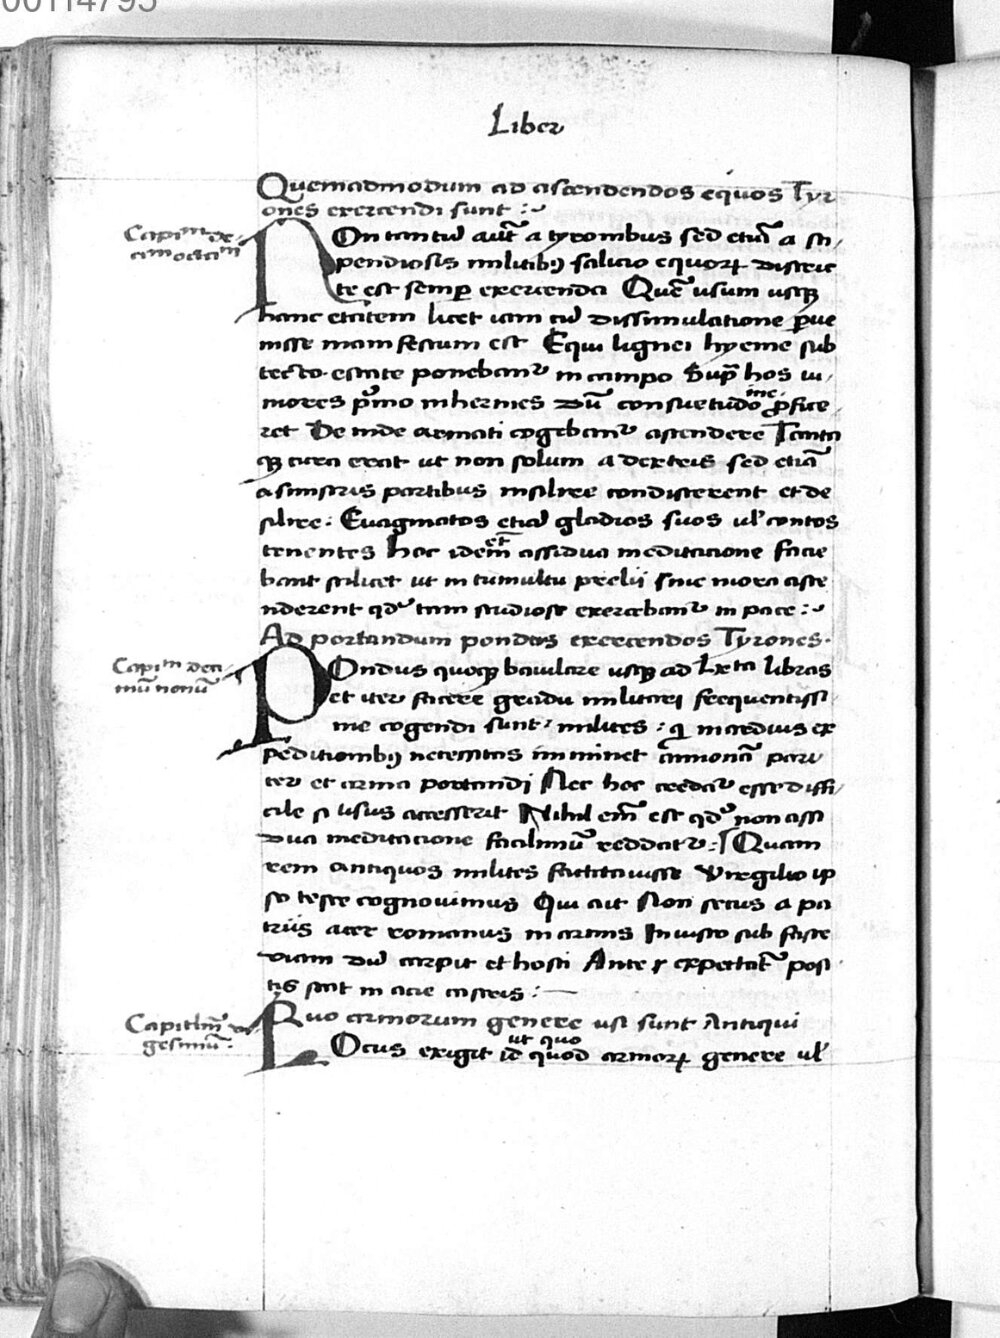 00114795
Liber
Quemadmodum ad ascendendos equos Tyr
ones exercendi sunt :~
Capitm̄ de-
cimoctam̄
Non tantū aut̄ a tyronibus sed etiā a sti/
pendiosis militibꝫ salicio equorꝝ districte
te est semꝑ exercenda Quē usum usqꝫ
hanc etatem licet iam cū dissimulatione ꝑue
nisse manifestum est Equi lignei hyeme sub
tecto estate ponebanᵗ in campo Supᵃ hos iu/
niores pͥmo inhermes dū consuetudīe ꝓfice
ret De inde armati cogebanᵗ ascendere Tanta
qꝫ cura erat ut non solum a dextris sed etiā
a sinistris partibus insilire condiscerent et de
silire: Evaginatos etiā gladios suos uƚ contos
tenentes hoc idem eī assidua meditacione facie
bant scilicet ut in tumultu prelij sine mora asce
nderent qͩ tam studiose exercebanᵗ in pace :~
Ad portandum pondus exercendos Tyrones.
Capitm̄ deci
mū nonū
Pondus quoqꝫ baiulare usqꝫ ad Lxta libras
et iter facere gradu militari frequentissi
me cogendi sunt milites : qͥ in arduis ex
peditionibꝫ necessitas imminet annonā pari
ter et arma portandi Nec hoc credaᵗ esse diffi/
cile si usus accesserit Nihil em̄ est qͩ non assi
dua meditacione facilimū reddatᵗ : Quam
rem antiquos milites factitauisse Virgilio ip
so teste cognouimus Qui ait Non secus a pa
triis acer romanus in armis Iniusto sub fasce
viam dū carpit et hosti Ante expectatū posi
tis stat in acie castris :—
Quo armorum genere usi sunt Antiqui
Capitlm̄ vi
gesimū :
Locus exigit ut quo id quod armorꝝ genere uƚ